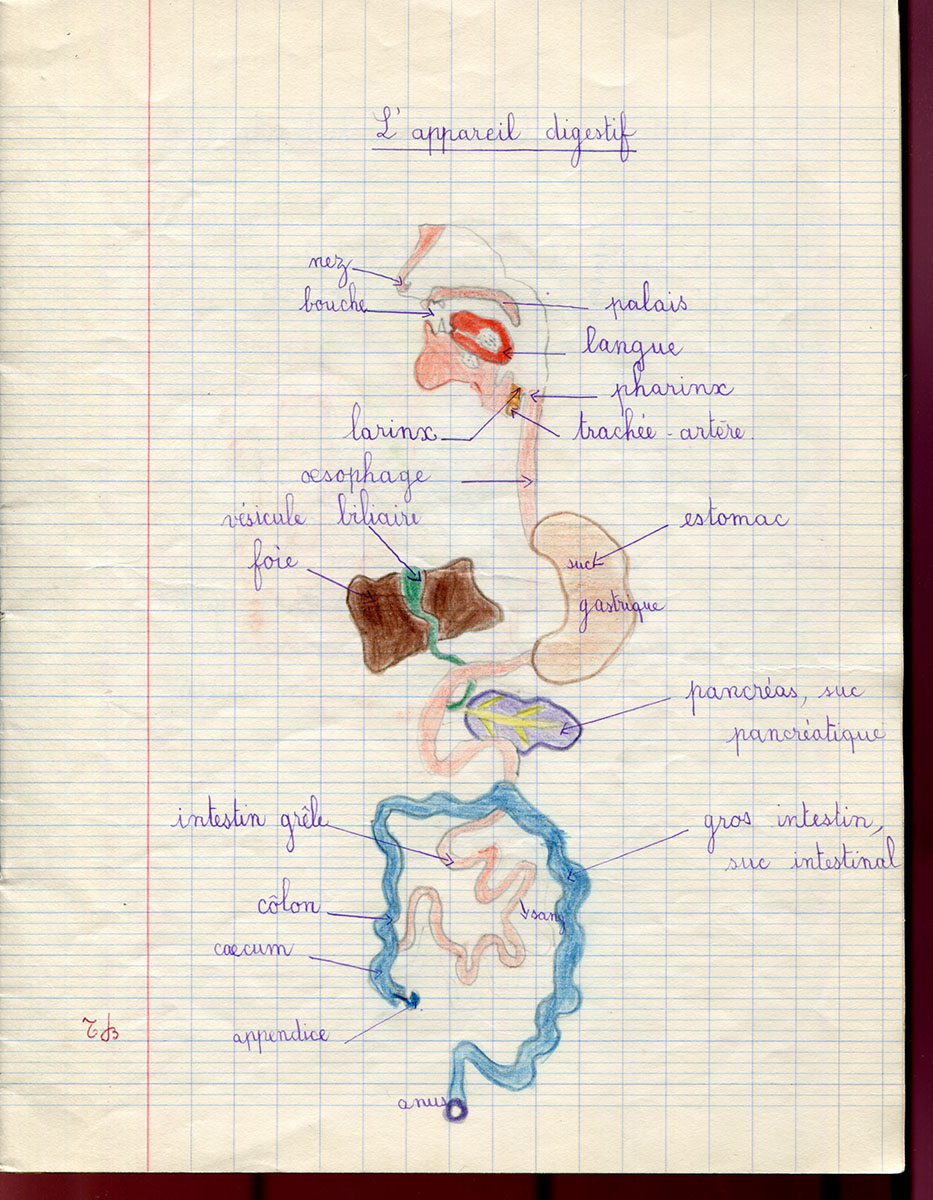 L'appareil digestif
nez
bouche
palais
langue
pharinx
larinx
trachée-artère.
œsophage
vésicule biliaire
estomac
foie
suc
gastrique
pancréas, suc
pancréatique
intestin grêle
gros intestin,
suc intestinal
côlon
sang
cæcum
appendice
anus